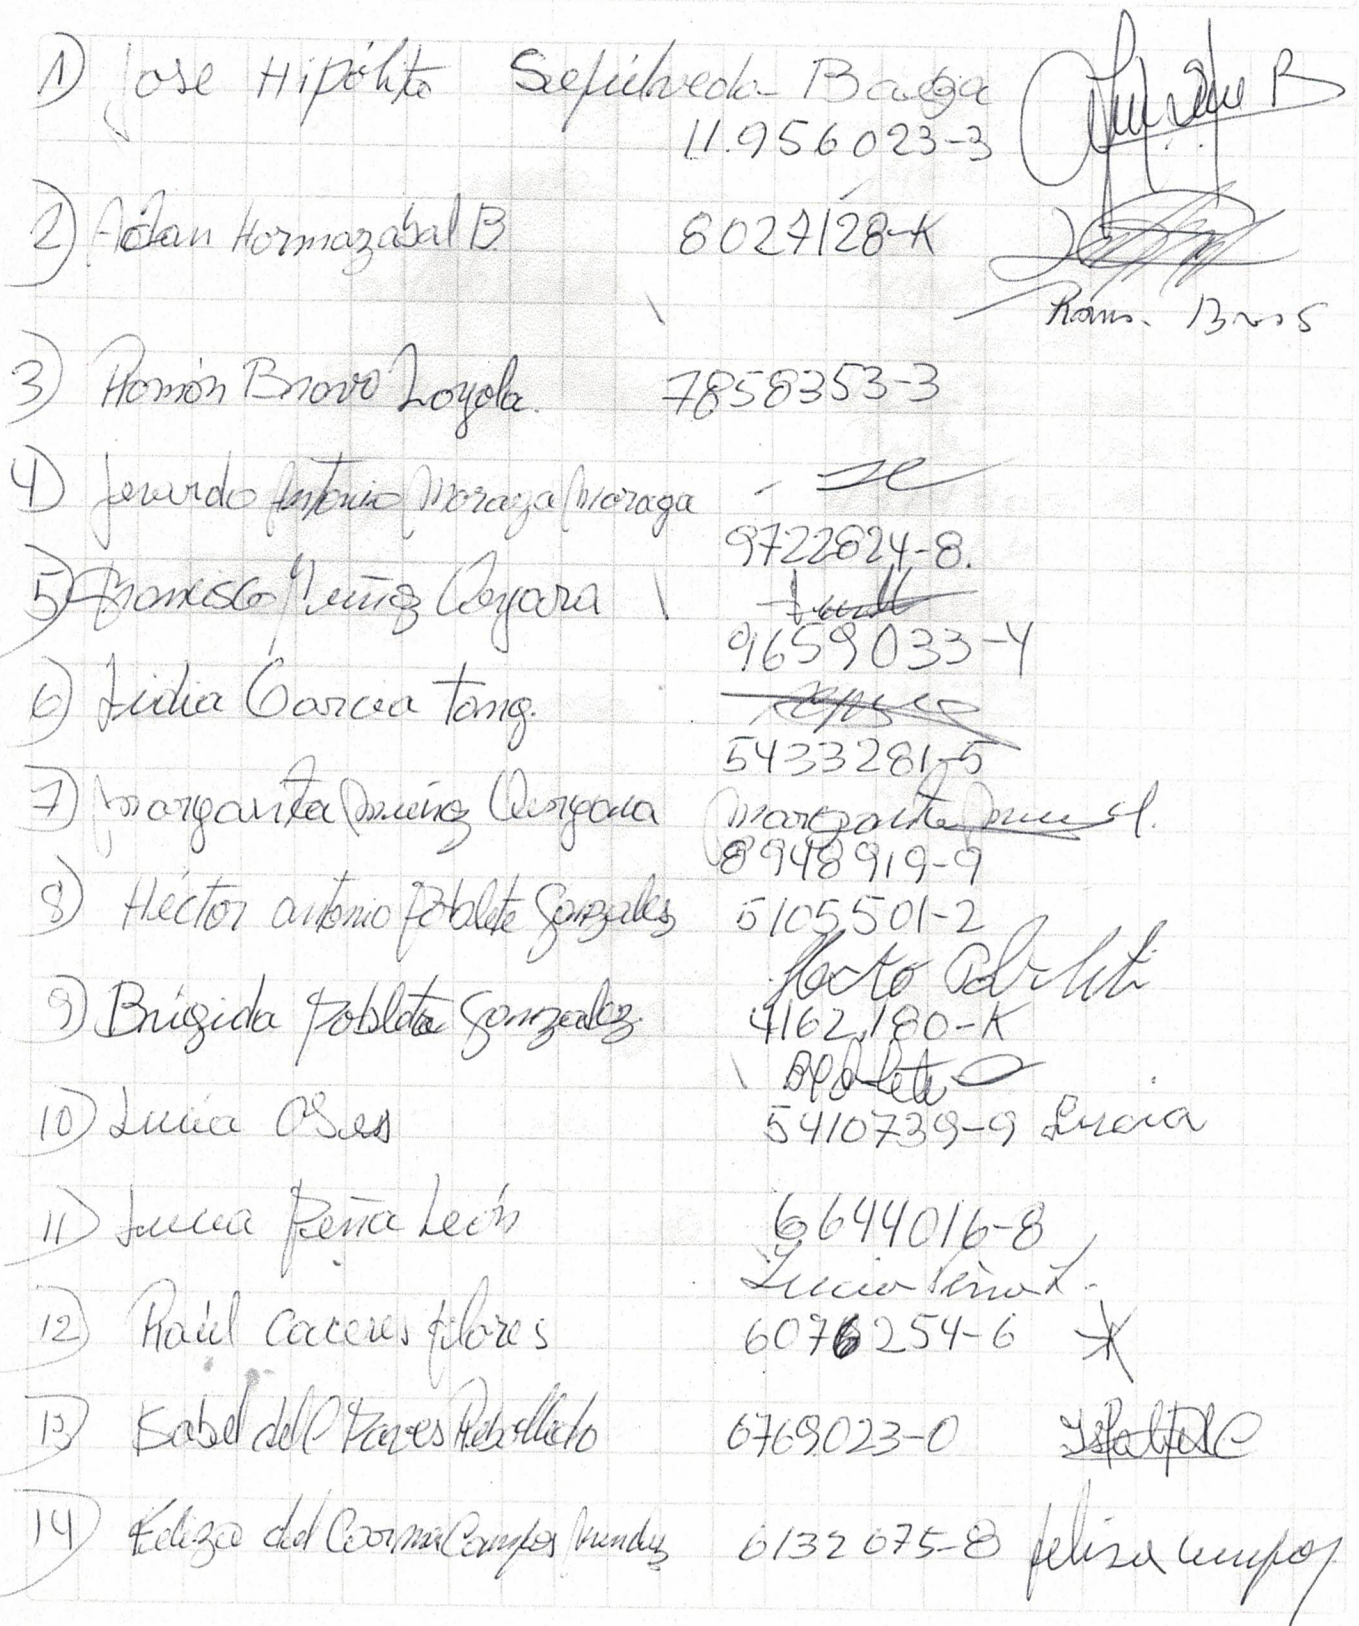 1) Jose Hipólito Sepúlveda Baeza
11.956023-3
2) Adan Hormazabal B 8027128-K
3) Ramón Bravo Loyola. 7858353-3
4) Antonio Moraga Moraga
9722624-8.
5) Francisco Muñoz
9659033-4
6) Lidia Garcia Tong.
5433281-5
7) Margarita Muñoz
8948919-9
8) Héctor antonio Poblete Gonzalez 5105501-2
Hecto Poblete
9) Brigida Poblete Gonzalez 4162180-K
10) Lucia Oses 5410739-9 Lucia
11) Lucia Peña León 6644016-8
Lucia Peña L.
12) Raúl Caceres flores 6076254-6
13) Isabel del 6769023-0
14) Feliza del Campos 6132675-8 felisa campos